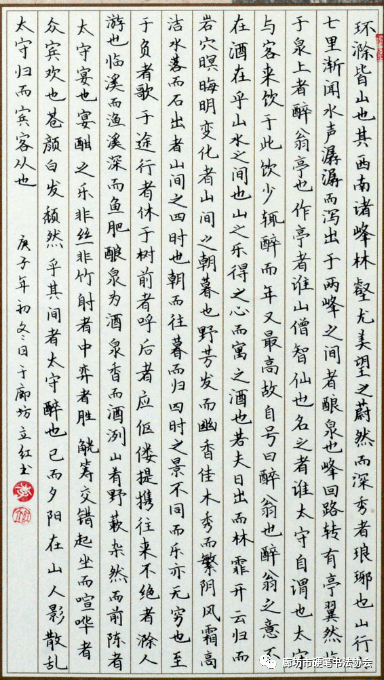 环滁皆山也其西南诸峰林壑尤美望之蔚然而深秀者琅琊也山行六
七里渐闻水声潺潺而泻出于两峰之间者酿泉也峰回路转有亭翼然临
于泉上者醉翁亭也作亭者谁山僧智仙也名之者谁太守自谓也太守
与客来饮于此饮少辄醉而年又最高故自号曰醉翁也醉翁之意不
在酒在乎山水之间也山之乐得之心而寓之酒也若夫日出而林霏开云归而
岩穴暝晦明变化者山间之朝暮也野芳发而幽香佳木秀而繁阴风霜高
洁水落而石出者山间之四时也朝而往暮而归四时之景不同而乐亦无穷也至
于负者歌于途行者休于树前者呼后者应伛偻提携往来不绝者滁人
游也临溪而渔溪深而鱼肥酿泉为酒泉香而酒洌山肴野蔌杂然而前陈者
太守宴也宴酣之乐非丝非竹射者中弈者胜觥筹交错起坐而喧哗者
众宾欢也苍颜白发颓然乎其间者太守醉也已而夕阳在山人影散乱
太守归而宾客从也
庚子年初冬日于廊坊立红书
廊坊市硬笔书法协会